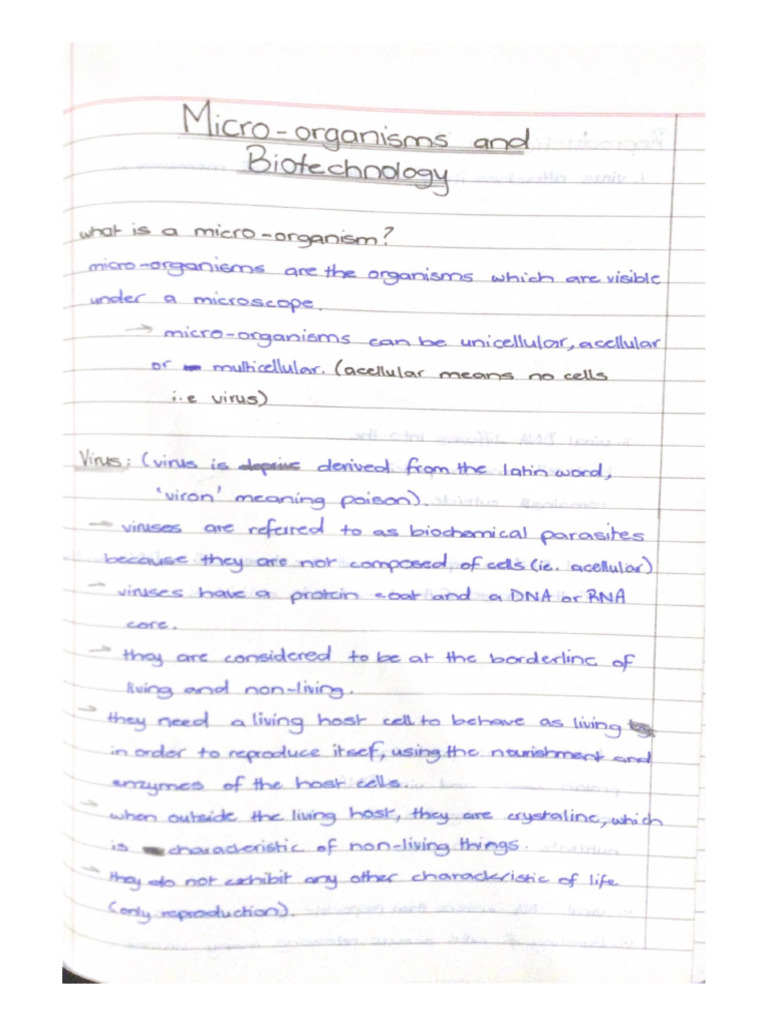 Micro-organisms and
Biotechnology
what is a micro-organism?
micro-organisms are the organisms which are visible
under a microscope.
→ micro-organisms can be unicellular, acellular
or multicellular. (acellular means no cells
i.e virus)
Virus: (virus is derived from the latin word,
'viron' meaning poison).
→ viruses are referred to as biochemical parasites
because they are not composed of cells (ie. acellular)
→ viruses have a protein coat and a DNA or RNA
core.
→ they are considered to be at the borderline of
living and non-living.
→ they need a living host cell to behave as living
in order to reproduce itself, using the nourishment and
enzymes of the host cells.
→ when outside the living host, they are crystaline, which
is characteristic of non-living things.
→ they do not exhibit any other characteristic of life
(only reproduction).